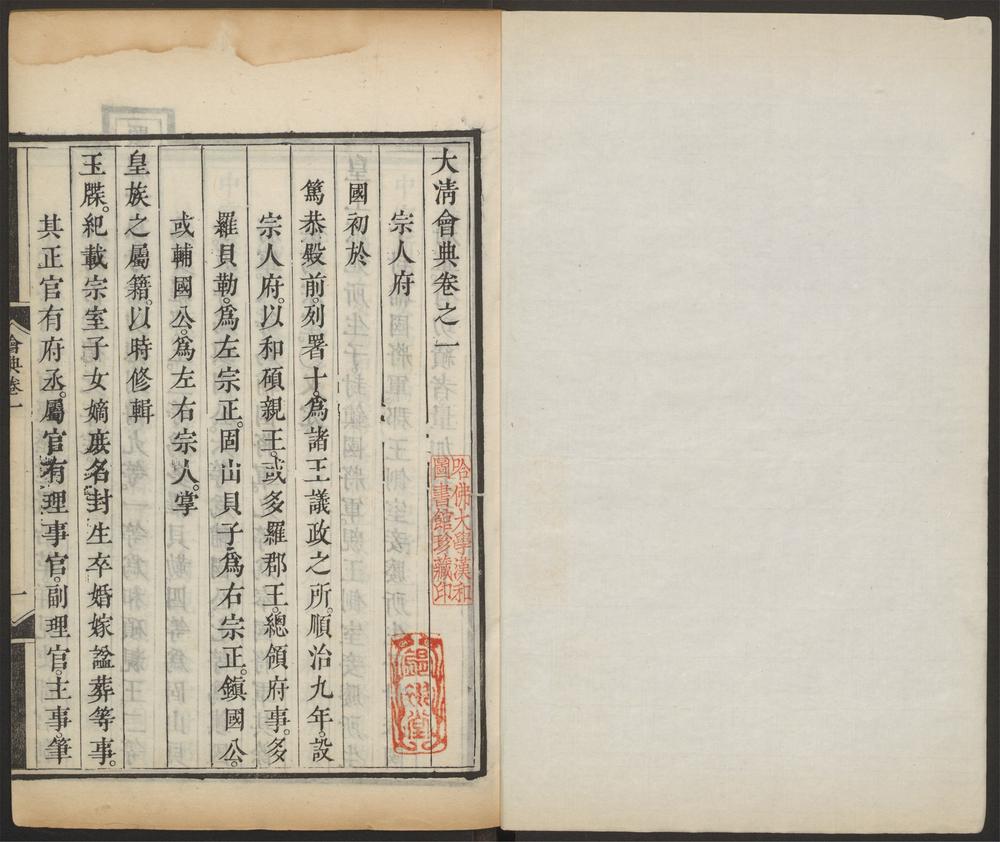 大淸會典卷之一
宗人府
國初於
篤恭殿前。列署十。爲諸王議政之所。順治九年。設
宗人府。以和碩親王。或多羅郡王。總領府事。多
羅貝勒。爲左宗正。固山貝子。爲右宗正。鎭國公。
或輔國公。爲左右宗人。掌
皇族之屬籍。以時修輯
玉牒。紀載宗室子女嫡庶名封生卒婚嫁諡葬等事。
其正官有府丞。屬官有理事官。副理官。主事。筆
會典卷一
一
哈佛大學漢和
圖書館珍藏印